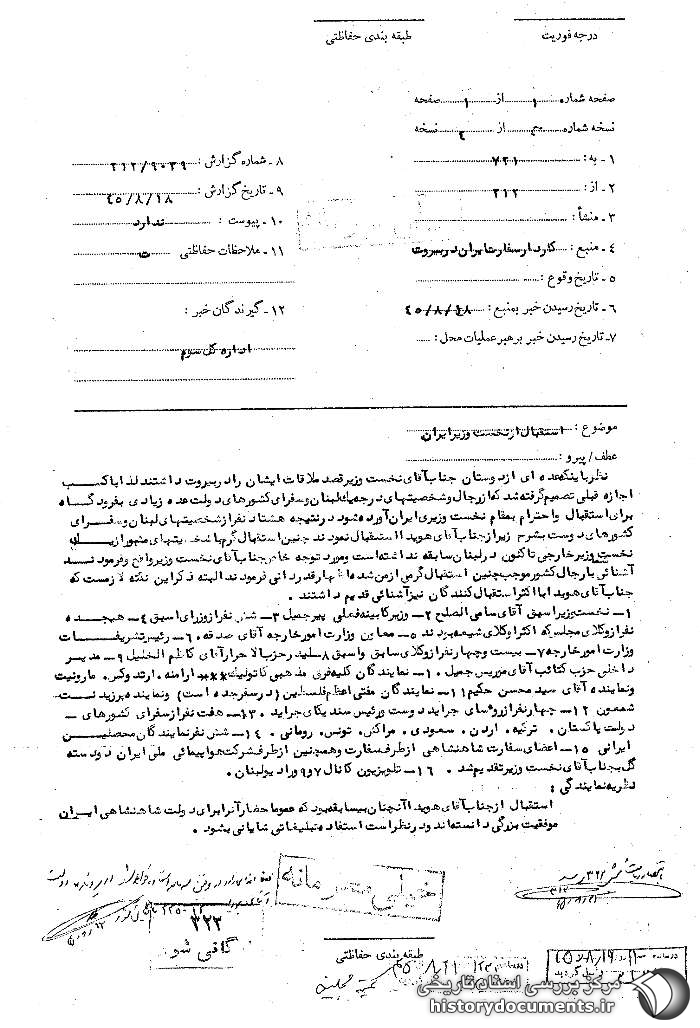 درجه فوریت
طبقه بندی حفاظتی
صفحه شماره ۱ از ۱ صفحه
نسخه شماره از ٤ نسخه
۱ - به : ۷۲۱
۲ - از : ۲۱۲
۳ - منشأ :
٤ - منبع : کاردار سفارت ایران در بیروت
٥ - تاریخ وقوع :
٦ - تاریخ رسیدن خبر بمنبع : ٤٥/۸/۱۸
۷ - تاریخ رسیدن خبر برهبر عملیات محل :
۸ - شماره گزارش : ۲۱۲/۹۰۳۹
۹ - تاریخ گزارش : ٤٥/۸/۱۸
۱۰ - پیوست : ندارد
۱۱ - ملاحظات حفاظتی ت
۱۲ - گیرندگان خبر :
اداره کل سوم
موضوع : استقبال از نخست وزیر ایران
عطف / پیرو :
نظر باینکه عده ای از دوستان جناب آقای نخست وزیر قصد ملاقات ایشان را در بیروت داشتند لذا با کسب
اجازه قبلی تصمیم گرفته شد که از رجال و شخصیتهای درجه یك لبنان و سفرای کشورهای دولت عده زیادی بفرودگاه
برای استقبال و احترام بمقام نخست وزیری ایران آورده شود در نتیجه هشتاد نفر از شخصیتهای لبنان و سفرای
کشورهای دوست بشرح زیر از جناب آقای هویدا استقبال نمودند چنین استقبال گرم با شخصیتهای متنوع از یك
نخست وزیر خارجی تاکنون در لبنان سابقه نداشته است و مورد توجه خاص جناب آقای نخست وزیر واقع و فرمودند
آشنائی با رجال کشور موجب چنین استقبال گرمی از من شده اظهار قدردانی فرمودند البته ذکر این نکته لازمست که
جناب آقای هویدا با اکثر استقبال کنندگان نیز آشنائی قدیم داشتند .
۱ - نخست وزیر اسبق آقای سامی الصلح ۲ - وزیر کابینه فعلی پیر جمیل ۳ - شش نفر از وزرای اسبق ٤ - هیجده
نفر از وکلای مجلس که اکثر وکلای شیعه بودند ٥ - معاون وزارت امور خارجه آقای صدقه ٦ - رئیس تشریفات
وزارت امور خارجه ۷ - بیست و چهار نفر از وکلای سابق و اسبق ۸ - لیدر حزب الاحرار آقای کاظم الخلیل ۹ - مدیر
داخلی حزب کتائب آقای موریس جمیل ۱۰ - نمایندگان کلیه فرق مذهبی کاتولیك ارامنه ، ارتدوکس ، مارونیت
و نماینده آقای سید محسن حکیم ۱۱ - نمایندگان مفتی اعظم فلسطین ( در سفر جده است ) و نماینده پرزیدنت
شمعون ۱۲ - چهار نفر از روسای جراید دوست و رئیس سندیکای جراید ۱۳ - هفت نفر از سفرای کشورهای
دولت پاکستان ، ترکیه ، اردن ، سعودی ، مراکش ، تونس ، رومانی ۱٤ - شش نفر نمایندگان محصلین
ایرانی ۱٥ - اعضای سفارت شاهنشاهی از طرف سفارت و همچنین از طرف شرکت هواپیمائی ملی ایران دو دسته
گل بجناب آقای نخست وزیر تقدیم شد . ۱٦ - تلویزیون کانال ۷ و ۹ و رادیو لبنان .
نظریه نمایندگی :
استقبال از جناب آقای هویدا آنچنان بیسابقه بود که عموما حضار آنرا برای دولت شاهنشاهی ایران
موفقیت بزرگی دانسته اند و در نظر است استفاده تبلیغاتی شایانی بشود .
خیلی محرمانه
۳۲۲
طبقه بندی حفاظتی
٤٥/۸/۲۱
٤٥/۸/۱۹
مرکز بررسی اسناد تاریخی
historydocuments.ir